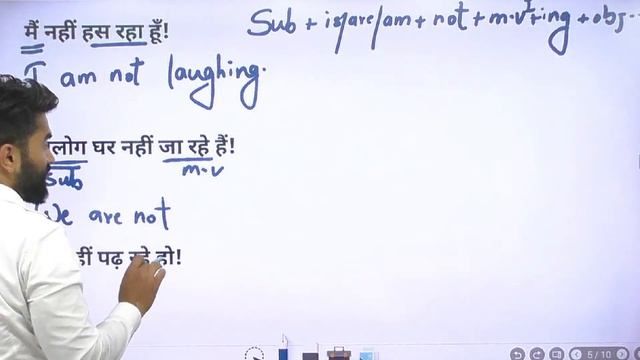 मैं नहीं हस रहा हूँ!
Sub + is/are/am + not + m.v I + ing + obj..
I am not laughing.
लोग घर नहीं जा रहे हैं!
Sub m.v
We are not
पढ़ रहे हो!
5 / 10